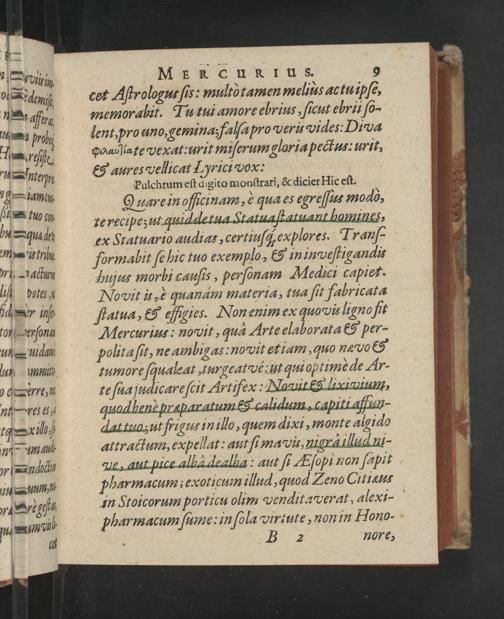 MERCURIUS. 9
cet Astrologus sis: multò tamen meliùs actu ipse,
memorabit. Tu tui amore ebrius, sicut ebrii so-
lent, pro uno, gemina; falsa pro veris vides: Diva
φιλαυτία te vexat: urit miserum gloria pectus: urit,
& aures vellicat Lyrici vox:
Pulchrum est digito monstrari, & dicier Hic est.
Quare in officinam, è qua es egressus modò,
te recipe; ut quid de tua Statua statuant homines,
ex Statuario audias, certiusq́; explores. Trans-
formabit se hic tuo exemplo, & in investigandis
hujus morbi causis, personam Medici capiet.
Novit is, è quanam materia, tua sit fabricata
statua, & effigies. Non enim ex quovis ligno fit
Mercurius: novit, quâ Arte elaborata & per-
polita sit, ne ambigas: novit etiam, quo nævo &
tumore squaleat, turgeatvé: ut qui optimè de Ar-
te sua judicare scit Artifex: Novit & lixivium,
quod benè præparatum & calidum, capiti affun-
dat tuo; ut frigus in illo, quem dixi, monte algido
attractum, expellat: aut si mavis, nigrâ illud ni-
ve, aut pice albâ dealba: aut si Æsopi non sapit
pharmacum; exoticum illud, quod Zeno Citiæus
in Stoicorum porticu olim venditaverat, alexi-
pharmacum sume: in sola virtute, non in Hono-
B 2 nore,